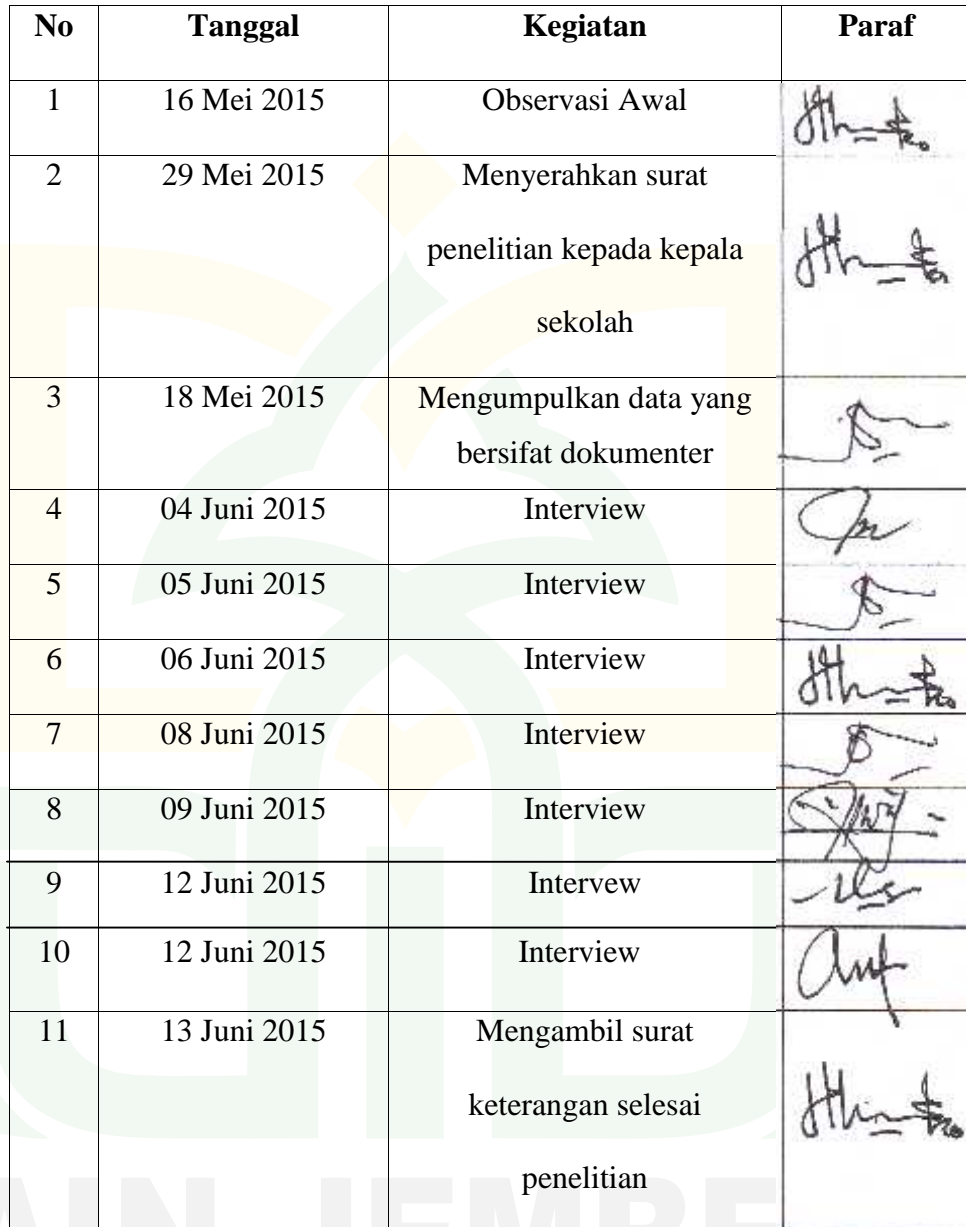 No Tanggal Kegiatan Paraf
1 16 Mei 2015 Observasi Awal
2 29 Mei 2015 Menyerahkan surat
penelitian kepada kepala
sekolah
3 18 Mei 2015 Mengumpulkan data yang
bersifat dokumenter
4 04 Juni 2015 Interview
5 05 Juni 2015 Interview
6 06 Juni 2015 Interview
7 08 Juni 2015 Interview
8 09 Juni 2015 Interview
9 12 Juni 2015 Intervew
10 12 Juni 2015 Interview
11 13 Juni 2015 Mengambil surat
keterangan selesai
penelitian